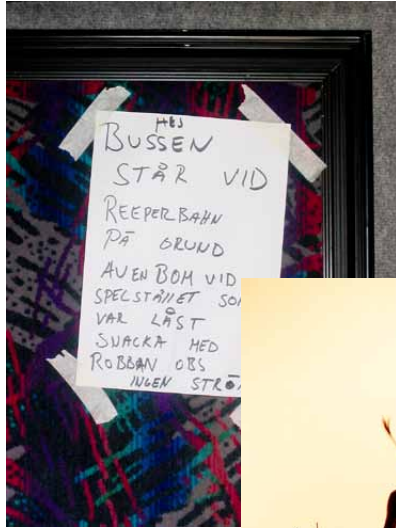 HEJ
BUSSEN
STÅR VID
REEPERBAHN
PÅ GRUND
AV EN BOM VID
SPELSTÄLLET
VAR LÅST
SNACKA MED
ROBBAN OBS
INGEN